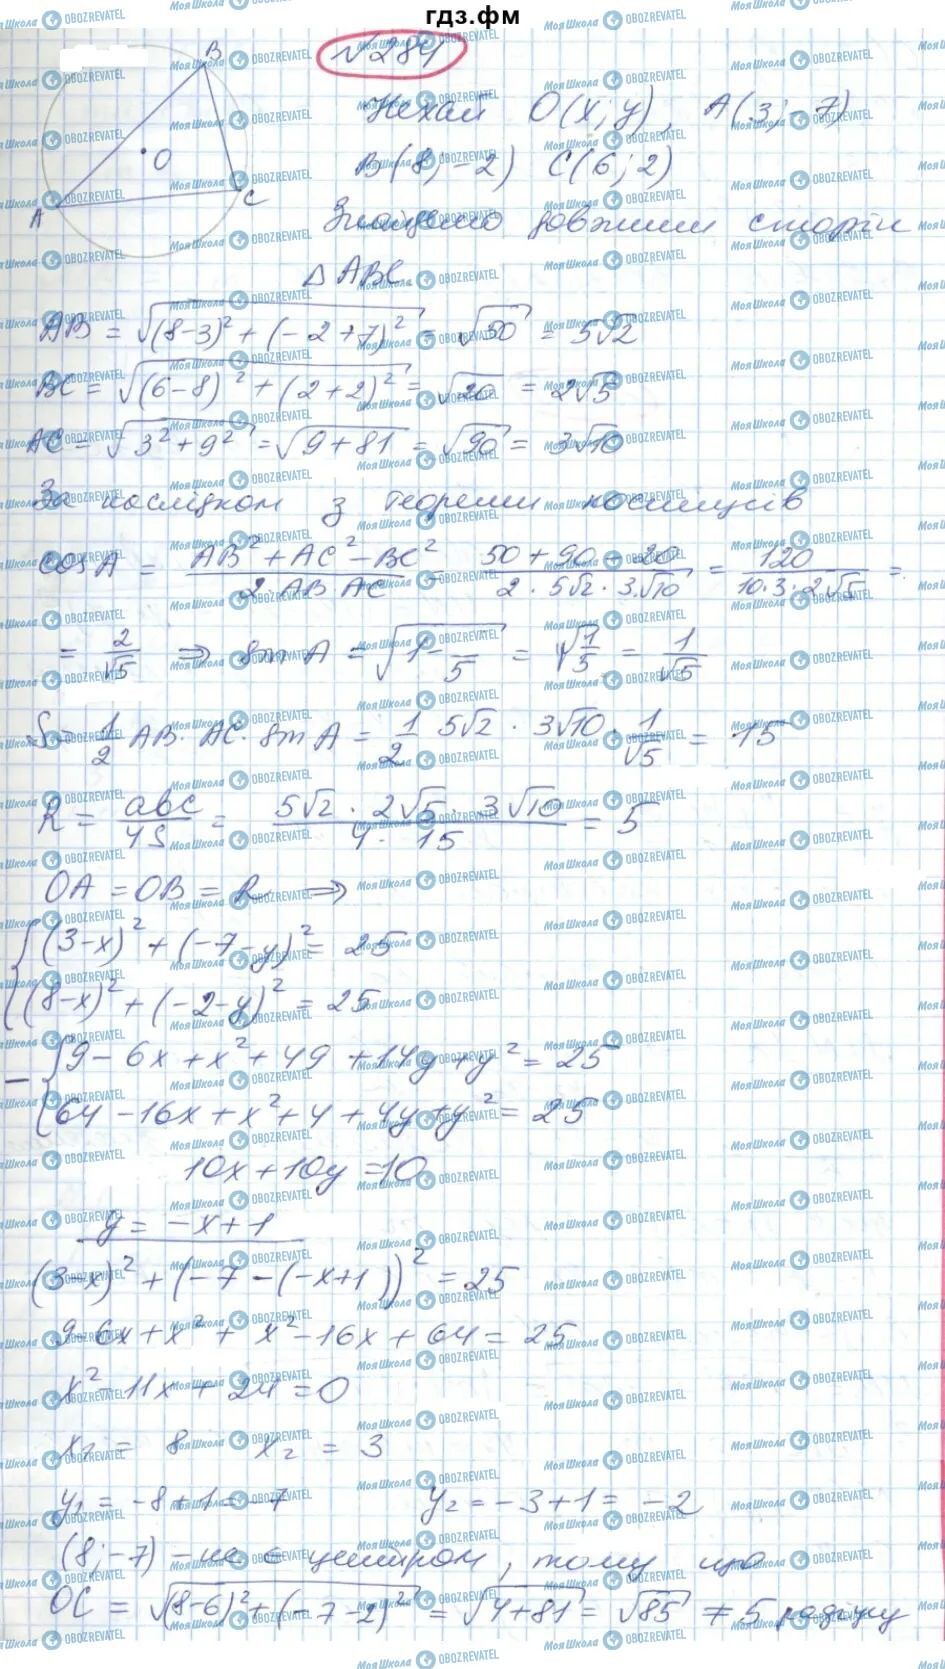 гдз.фм
√284
B
O
A
C
Нехай O(x; y), A(3; -7)
B(8; -2) C(6; 2)
Знайдемо довжини сторін
△ABC.
AB = √((8-3)² + (-2+7)²) = √50 = 5√2
BC = √((6-8)² + (2+2)²) = √20 = 2√5
AC = √(3² + 9²) = √(9+81) = √90 = 3√10
За наслідком з теореми косинусів
cos A = (AB² + AC² - BC²)/(2·AB·AC) = (50 + 90 - 20)/(2 · 5√2 · 3√10) = 120/(10·3·2√5) =
= 2/√5 ⇒ sin A = √(1 - /5) = √(1/5) = 1/√5
S = 1/2 AB · AC · sin A = 1/2 5√2 · 3√10 · 1/√5 = 15
R = abc/4S = (5√2 · 2√5 · 3√10)/(4 · 15) = 5
OA = OB = R ⇒
{(3-x)² + (-7-y)² = 25
{(8-x)² + (-2-y)² = 25
- {9 - 6x + x² + 49 + 14y + y² = 25
{64 - 16x + x² + 4 + 4y + y² = 25
10x + 10y = 10
y = -x + 1
(3-x)² + (-7 - (-x+1))² = 25
9-6x + x² + x² - 16x + 64 = 25
x² - 11x + 24 = 0
x₁ = 8 x₂ = 3
y₁ = -8 + 1 = -7 y₂ = -3 + 1 = -2
(8; -7) - не є центром, тому що
OC = √((8-6)² + (-7-2)²) = √(4+81) = √85 ≠ 5 радіусу
Моя Школа OBOZREVATEL